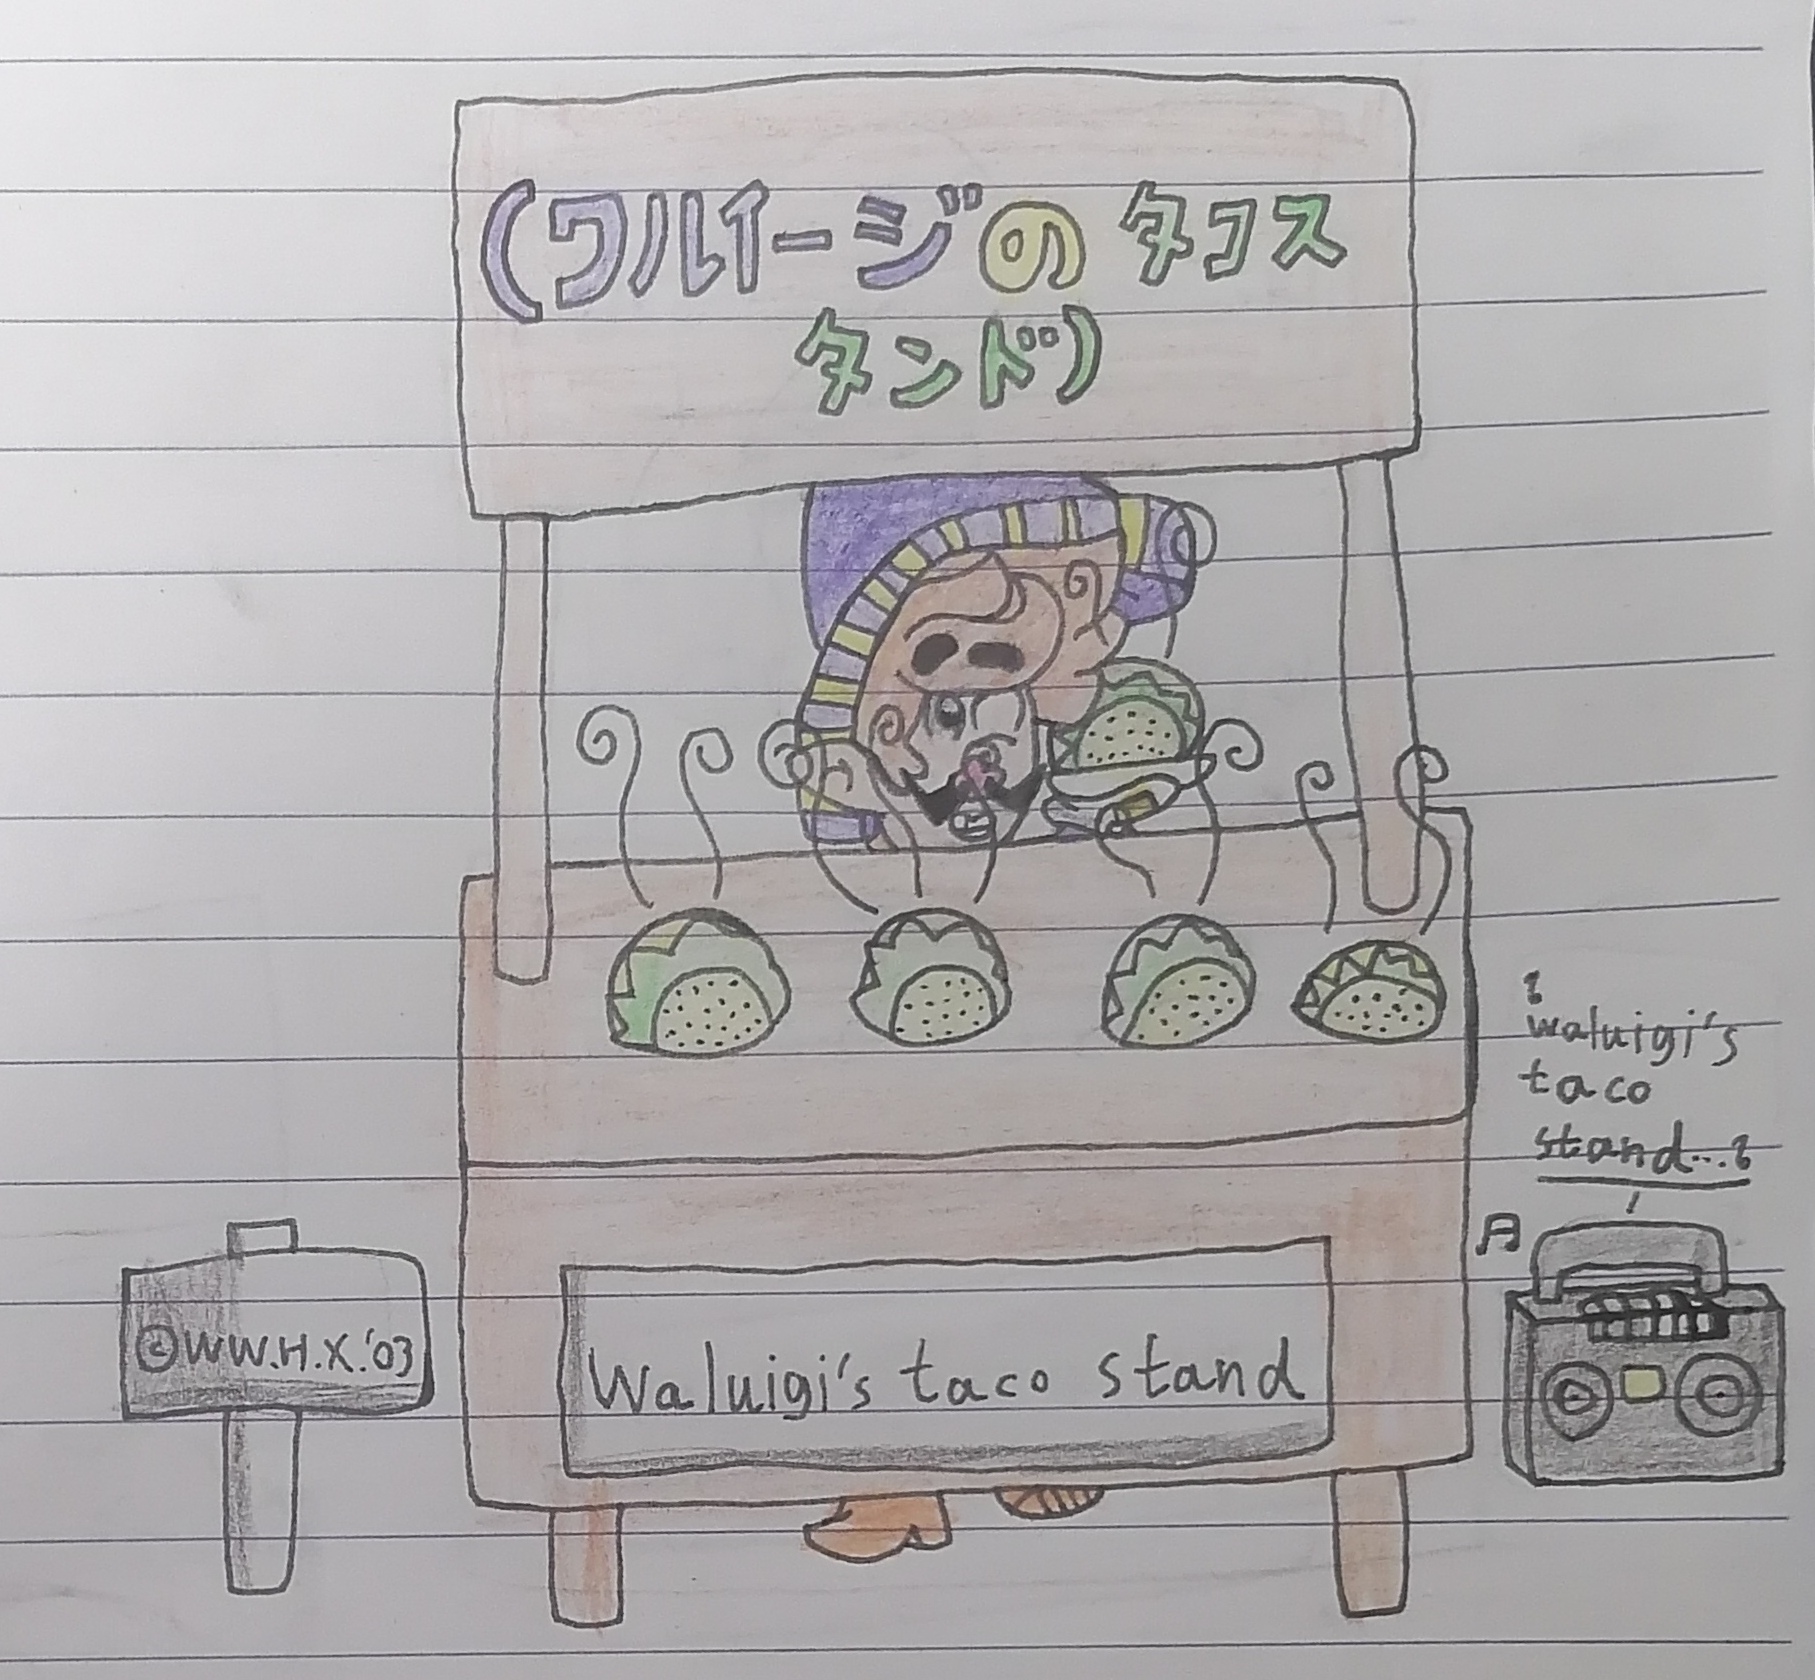 (ワルイージのタコス
タンド)
waluigi's
taco
stand...
©WW.H.X.'03
Waluigi's taco stand